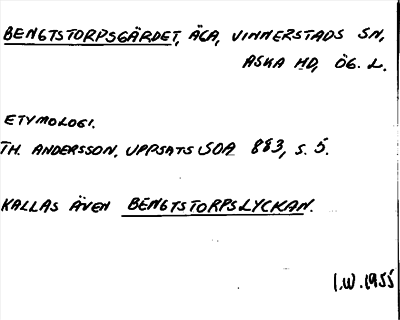 BENGTSTORPSGÄRDET, ÄGA, VINNERSTADS SN,
ASKA HD, ÖG. L.
ETYMOLOGI.
TH. ANDERSSON, UPPSATS SOA 883, S. 5.
KALLAS ÄVEN BENGTSTORPSLYCKAN.
I.W. 1955